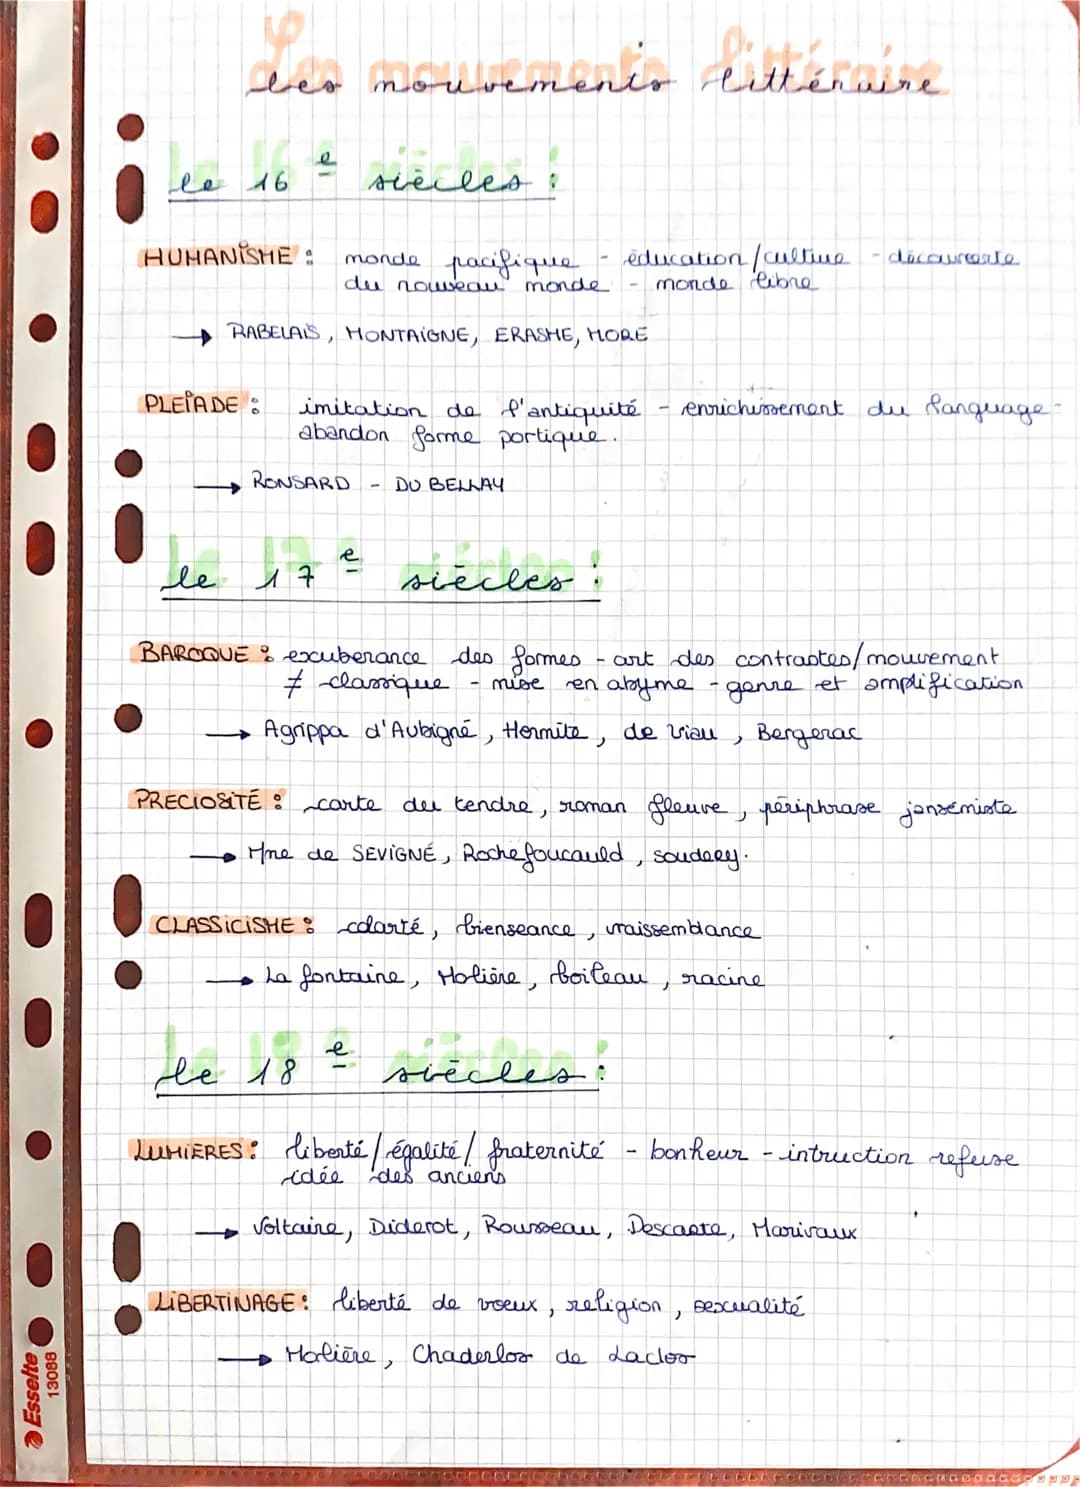 Les mouvements littéraire
le 16e siècles :
HUMANISME : monde pacifique - éducation/culture - découverte
du nouveau monde - monde libre
→ RABELAIS, MONTAIGNE, ERASME, MORE
PLEIADE : imitation de l'antiquité - enrichissement du language -
abandon forme portique.
→ RONSARD - DU BELLAY
le 17e siècles :
BAROQUE : excuberance des formes - art des contrastes/mouvement
≠ classique - mise en abyme - genre et amplification
→ Agrippa d'Aubigné, Hermite, de Viau, Bergerac
PRECIOSITÉ : carte du tendre, roman fleuve, périphrase janséniste
→ Mme de SEVIGNÉ, Rochefoucauld, soudery.
CLASSICISME : clarté, bienseance, vraissemblance
→ La fontaine, Molière, boileau, racine
le 18e siècles :
LUMIERES : liberté/égalité/fraternité - bonheur - intruction refuse
idée des anciens
→ Voltaire, Diderot, Rousseau, Descarte, Marivaux
LIBERTINAGE : liberté de voeux, religion, sexualité
→ Molière, Chaderlos de Laclos
Esselte
13088